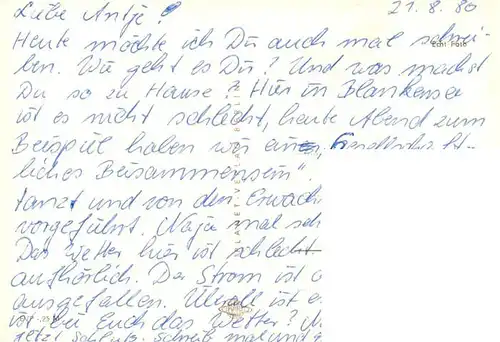 Liebe Antje! 21.8.80
Heute möchte ich Dir auch mal schrei-
Echt Foto
ben. Wie geht es Dir? Und was machst
Du so zu Hause? Hier in Blankensee
ist es nicht schlecht, heute Abend zum
Beispiel haben wir ein
liches Beisammensein".
tanzt und von den Erwach
vorgeführt. Naja mal seh
Das Wetter hier ist schlecht
aufhörlich. Der Strom ist
ausgefallen. Überall ist
ist bei Euch das Wetter?
jetzt Schluß, schreib mal und